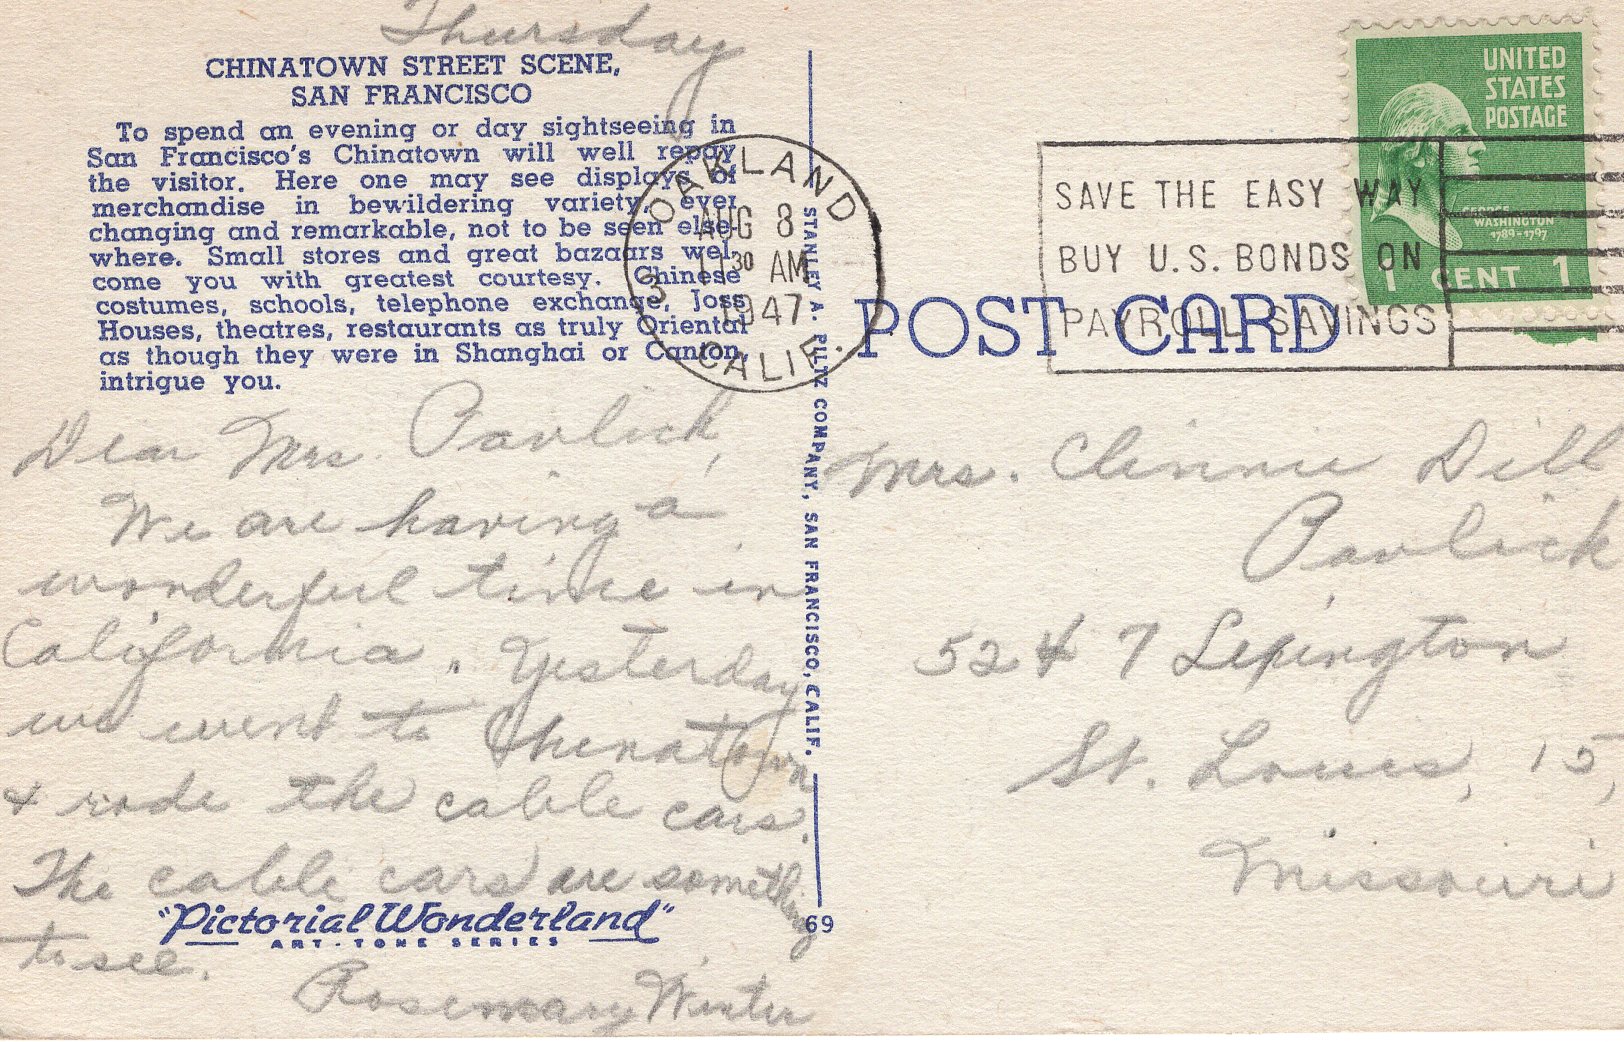 Thursday
CHINATOWN STREET SCENE,
SAN FRANCISCO
To spend an evening or day sightseeing in
San Francisco's Chinatown will well repay
the visitor. Here one may see displays of
merchandise in bewildering variety, ever
changing and remarkable, not to be seen else-
where. Small stores and great bazaars wel-
come you with greatest courtesy. Chinese
costumes, schools, telephone exchange, Joss
Houses, theatres, restaurants as truly Oriental
as though they were in Shanghai or Canton,
intrigue you.
Dear Mrs. Pavlick,
We are having a
wonderful time in
California. Yesterday
we went to Chinatown
& rode the cable cars.
The cable cars are something
to see.
Rosemary Winter
"Pictorial Wonderland"
ART-TONE SERIES
69
STANLEY A. PILTZ COMPANY, SAN FRANCISCO, CALIF.
OAKLAND
AUG 8
11 30 AM
1947
3
CALIF.
SAVE THE EASY WAY
BUY U.S. BONDS ON
PAYROLL SAVINGS
UNITED
STATES
POSTAGE
GEORGE
WASHINGTON
1789-1797
1 CENT 1
POST CARD
Mrs. Clinnie Dill
Pavlick
5247 Lexington
St. Louis, 15,
Missouri